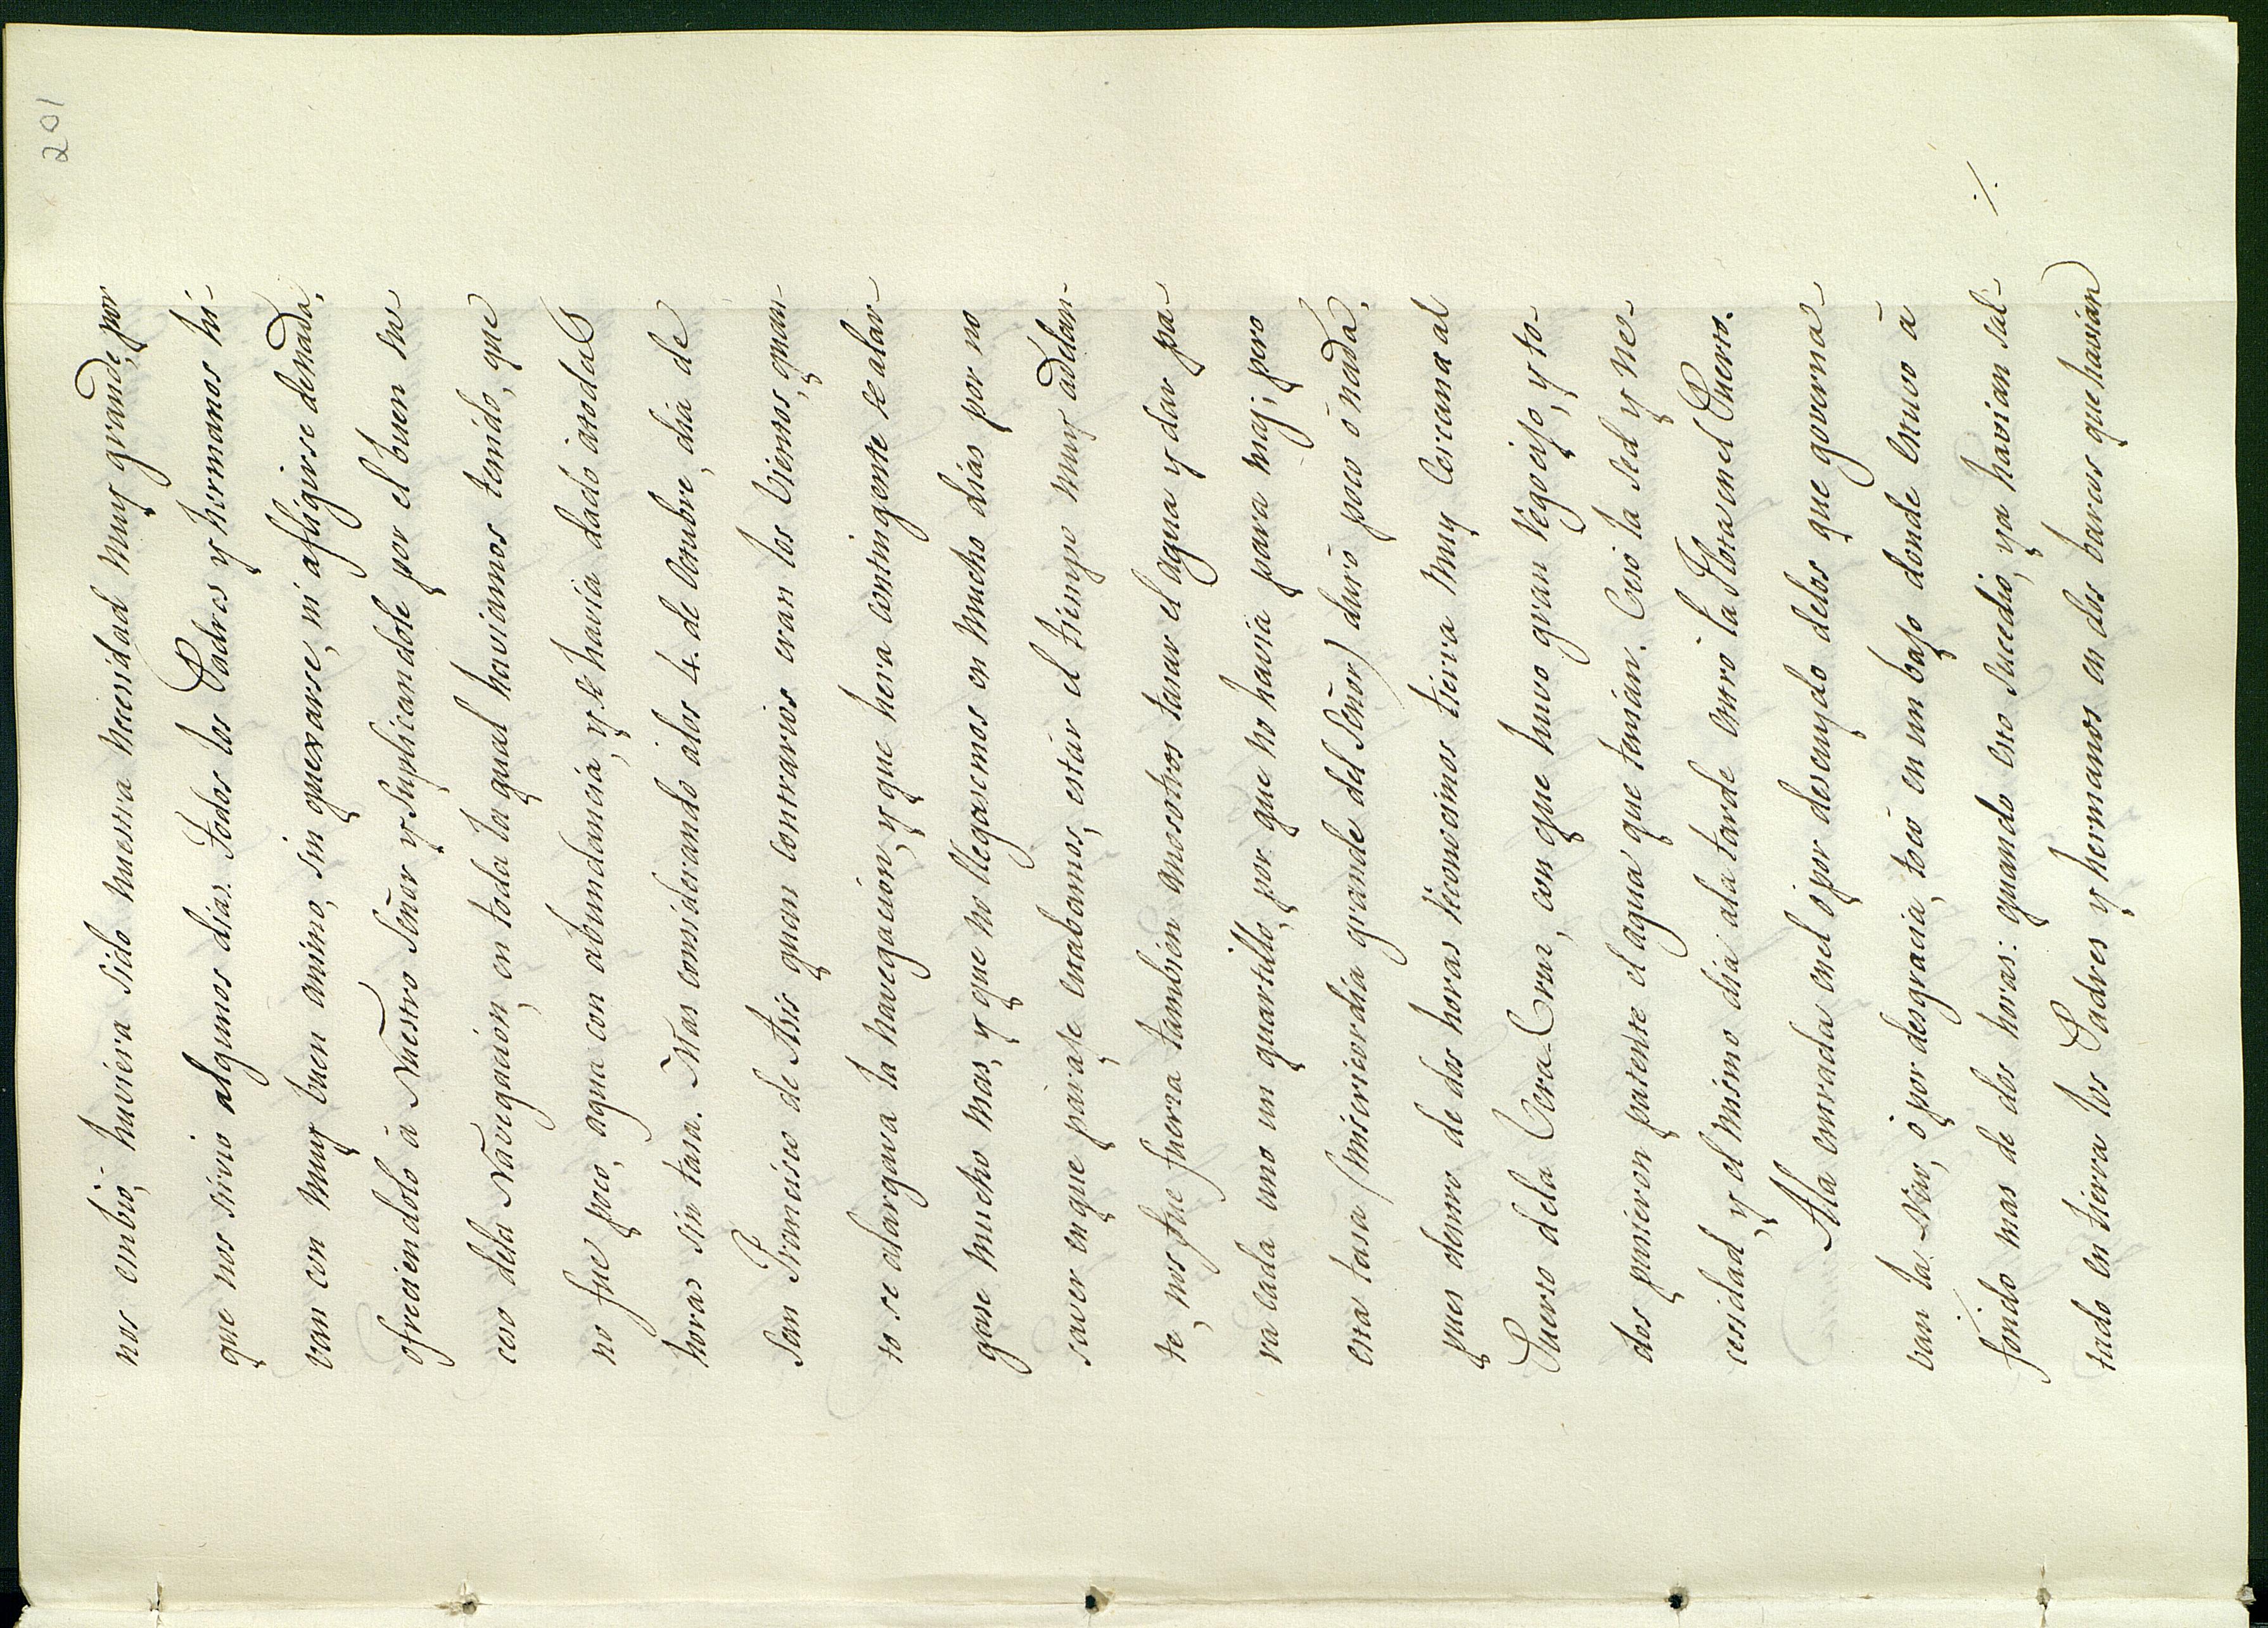 201
nos embió, huviera sido nuestra necesidad muy grande, por
que nos sirvio algunos dias. Todos los Padres y hermanos hi-
van con muy buen animo, sin quexarse, ni afligirse denada,
ofreciendolo à Nuestro Señor y Suplicandole por el buen su
ceso dela Navegacion, en toda la qual haviamos tenido, que
no fue poco, agua con abundancia, y se havia dado atodas
horas sin tasa. Mas considerando alos 4. de Octubre, dia de
San Francisco de Asis quan contrarios eran los Vientos, quan-
to se alargava la navegacion, y que hera contingente se alar-
gase mucho mas, y que no llegasemos en mucho dias por no
saver enque parase estabamos, estàr el tiempo muy adelan-
te, nos fue fuerza tambien anosotros tasar el agua y dar pa-
ra cada uno un quartillo, por que no havia para mas; pero
esta tasa (misericordia grande del Señor) durò poco ò nada,
pues dentro de dos horas reconocimos tierra muy Cercana al
Puerto dela Vera-Cruz, con que huvo gran regocijo, y to-
dos pusieron patente el agua que tenian. Cesó la sed y ne-
cesidad, y el mismo dia ala tarde entrò la Flota en el Puerto.
Ala entrada en el ò por descuydo delos que governa-
van la Nao, ò por desgracia, tocò en un bajo donde estuvo à
fondo mas de dos horas: quando esto sucediò, ya havian sal-
tado en tierra los Padres y hermanos en dos barcos que havian
./.